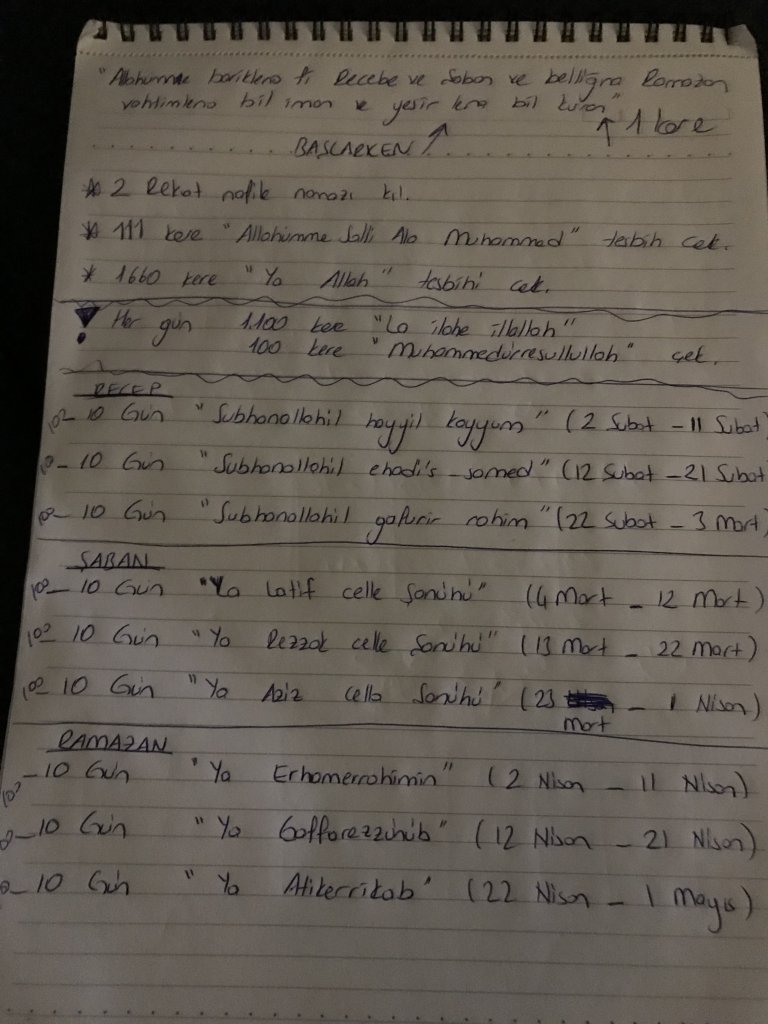 "Allahümme bariklena fi Recebe ve Şaban ve belliğna Ramazan
vahtimlena bil iman ve yessir lena bil kuran"
↑ 1 kere
BAŞLARKEN ↗
* 2 Rekat nafile namazı kıl.
* 111 kere "Allahümme Salli Ala Muhammed" tesbih çek.
* 1660 kere "Ya Allah" tesbihi çek.
! Her gün 1.100 kere "La ilahe illallah"
100 kere "Muhammedürresullullah" çek.
RECEP
100- 10 Gün "Subhanallahil hayyil kayyum" (2 Şubat - 11 Şubat)
100- 10 Gün "Subhanallahil ehadi's-samed" (12 Şubat - 21 Şubat)
100- 10 Gün "Subhanallahil gafurir rahim" (22 Şubat - 3 Mart)
ŞABAN
100- 10 Gün "Ya Latif celle şanühü" (4 Mart - 12 Mart)
100- 10 Gün "Ya Rezzak celle şanühü" (13 Mart - 22 Mart)
100- 10 Gün "Ya Aziz celle şanühü" (23 Mart - 1 Nisan)
RAMAZAN
100- 10 Gün "Ya Erhamerrahimin" (2 Nisan - 11 Nisan)
- 10 Gün "Ya Gaffarezzünüb" (12 Nisan - 21 Nisan)
- 10 Gün "Ya Atikerrikab" (22 Nisan - 1 Mayıs)